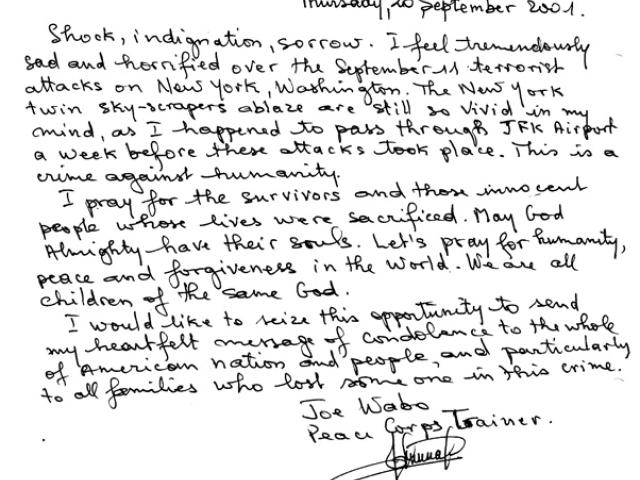 Thursday, 20 September 2001.
Shock, indignation, sorrow. I feel tremendously
sad and horrified over the September 11 terrorist
attacks on New York, Washington. The New York
twin sky-scrapers ablaze are still so vivid in my
mind, as I happened to pass through JFK Airport
a week before these attacks took place. This is a
crime against humanity.
I pray for the survivors and those innocent
people whose lives were sacrificed. May God
Almighty have their souls. Let's pray for humanity,
peace and forgiveness in the world. We are all
children of the same God.
I would like to seize this opportunity to send
my heartfelt message of condolance to the whole
of American nation and people, and particularly
to all families who lost some one in this crime.
Joe Wabo
Peace Corps Trainer.